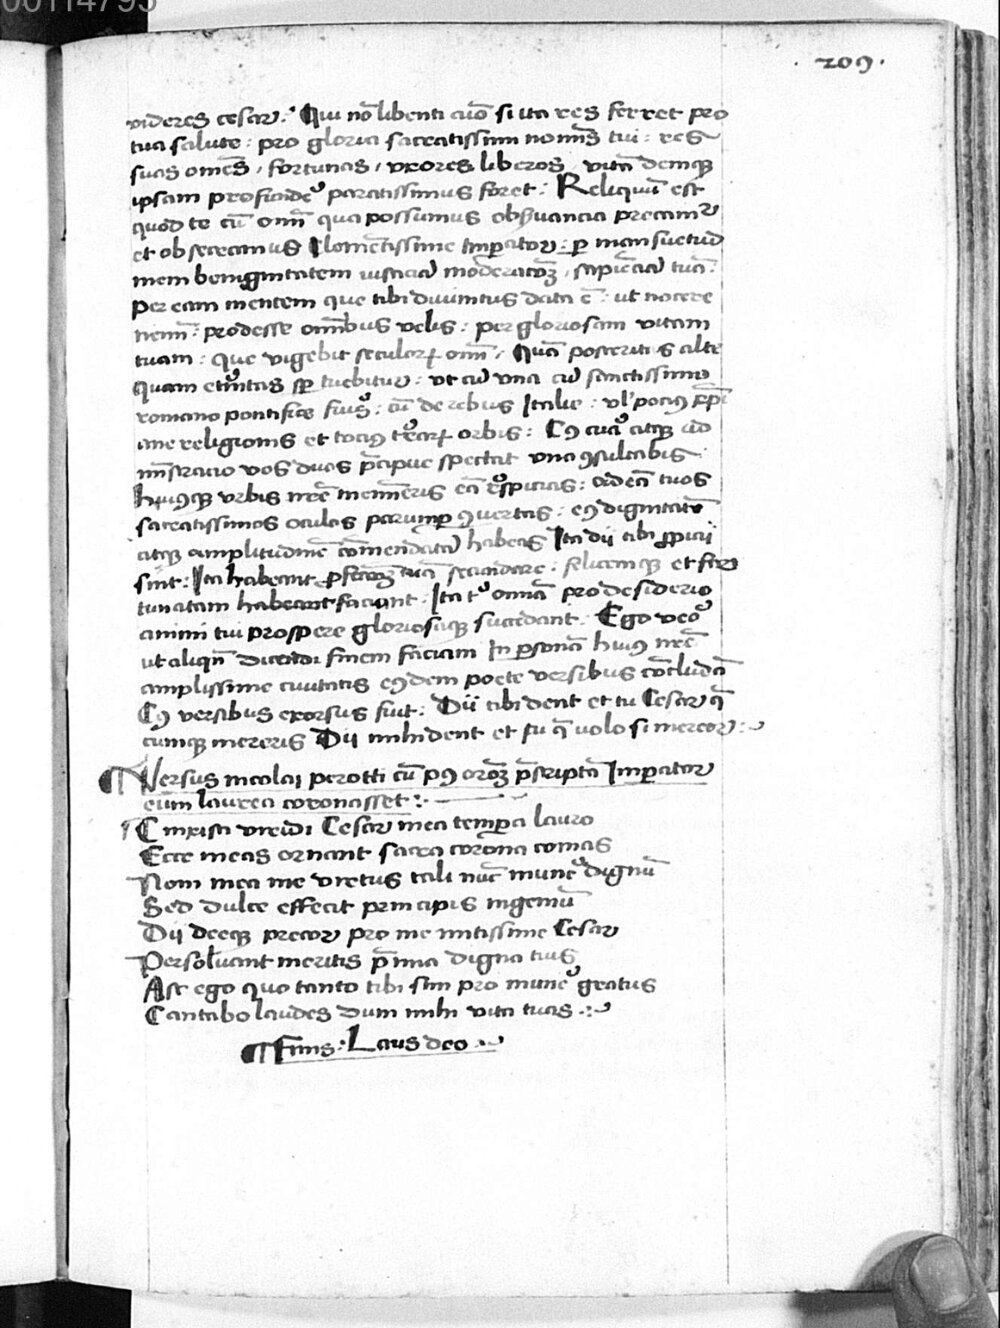 00114795
209
videres cesar: Qui nō libenti aīo si ita res ferret pro
tua salute: pro gloria sacratissimi nominis tui: res
suas omēs, fortunas, uxores liberos, vitā deniq̄
ipsam profundere paratissimus foret: Reliquū est
quod te cū omni qua possumus obseruantia precamur
et obsecramus Clomētissime Imperator: p̲ mansuetud
inem benignitatem iusticiā moderatōꝫ, sapiētiā tuā:
per eam mentem que tibi diuinitus data ē: ut nocere
nemini: prodesse omībus velis: per gloriosam vitam
tuam: que vigebit seculorꝝ omni, Quā posteritas alte
quam eternitas semper tuebitur: ut cū una cū sanctissimo
romano pontifice fueris: cū de rebus Italie: vl' potius xp̄i
ane religionis et totius terrarꝝ orbis: Cuius cura atq̄ ad
ministratio vos duos p̄cipue spectat una consultabis
huiusq̄ urbis nr̄e memineris eā respicias: ad eā tuos
sacratissimos oculos parumper conuertas: eius dignitatē
atq̄ amplitudinē comēdatā habeas Ita dii tibi propicii
sint: Ita habeant p̲fectōꝫ tuā secundare: felicemq̄ et for
tunatam habeant faciant: Ita tibi omnia pro desiderio
animi tui prospere gloriosaq̄ succedant: Ego vero
ut aliqn̄ dicendi finem faciam In personā huius nr̄e
amplissime ciuitatis eiusdem poete versibus cōcludā
Cuius versibus exorsus fui: Dii tibi dent et tu Cesar q̄
cumq̄ mereris Dii mihi dent et tu q̄ volo si mereor:
Versus nicolai perotti cū post oroꝫ p̄scriptā Imperator
eum laurea coronasset:
Cinxisti viridi Cesar mea tempora lauro
Ecce meas ornant sacra corona comas
Non mea me virtus tali nūc munere dignū
Sed dulce effecit principis ingeniū
Dii deeq̄ precor pro me mitissime Cesar
Persoluant meritis p̄mia digna tuis
Ast ego quo tanto tibi sim pro munere gratus
Cantabo laudes dum mihi vita tuas.
Finis: Laus deo